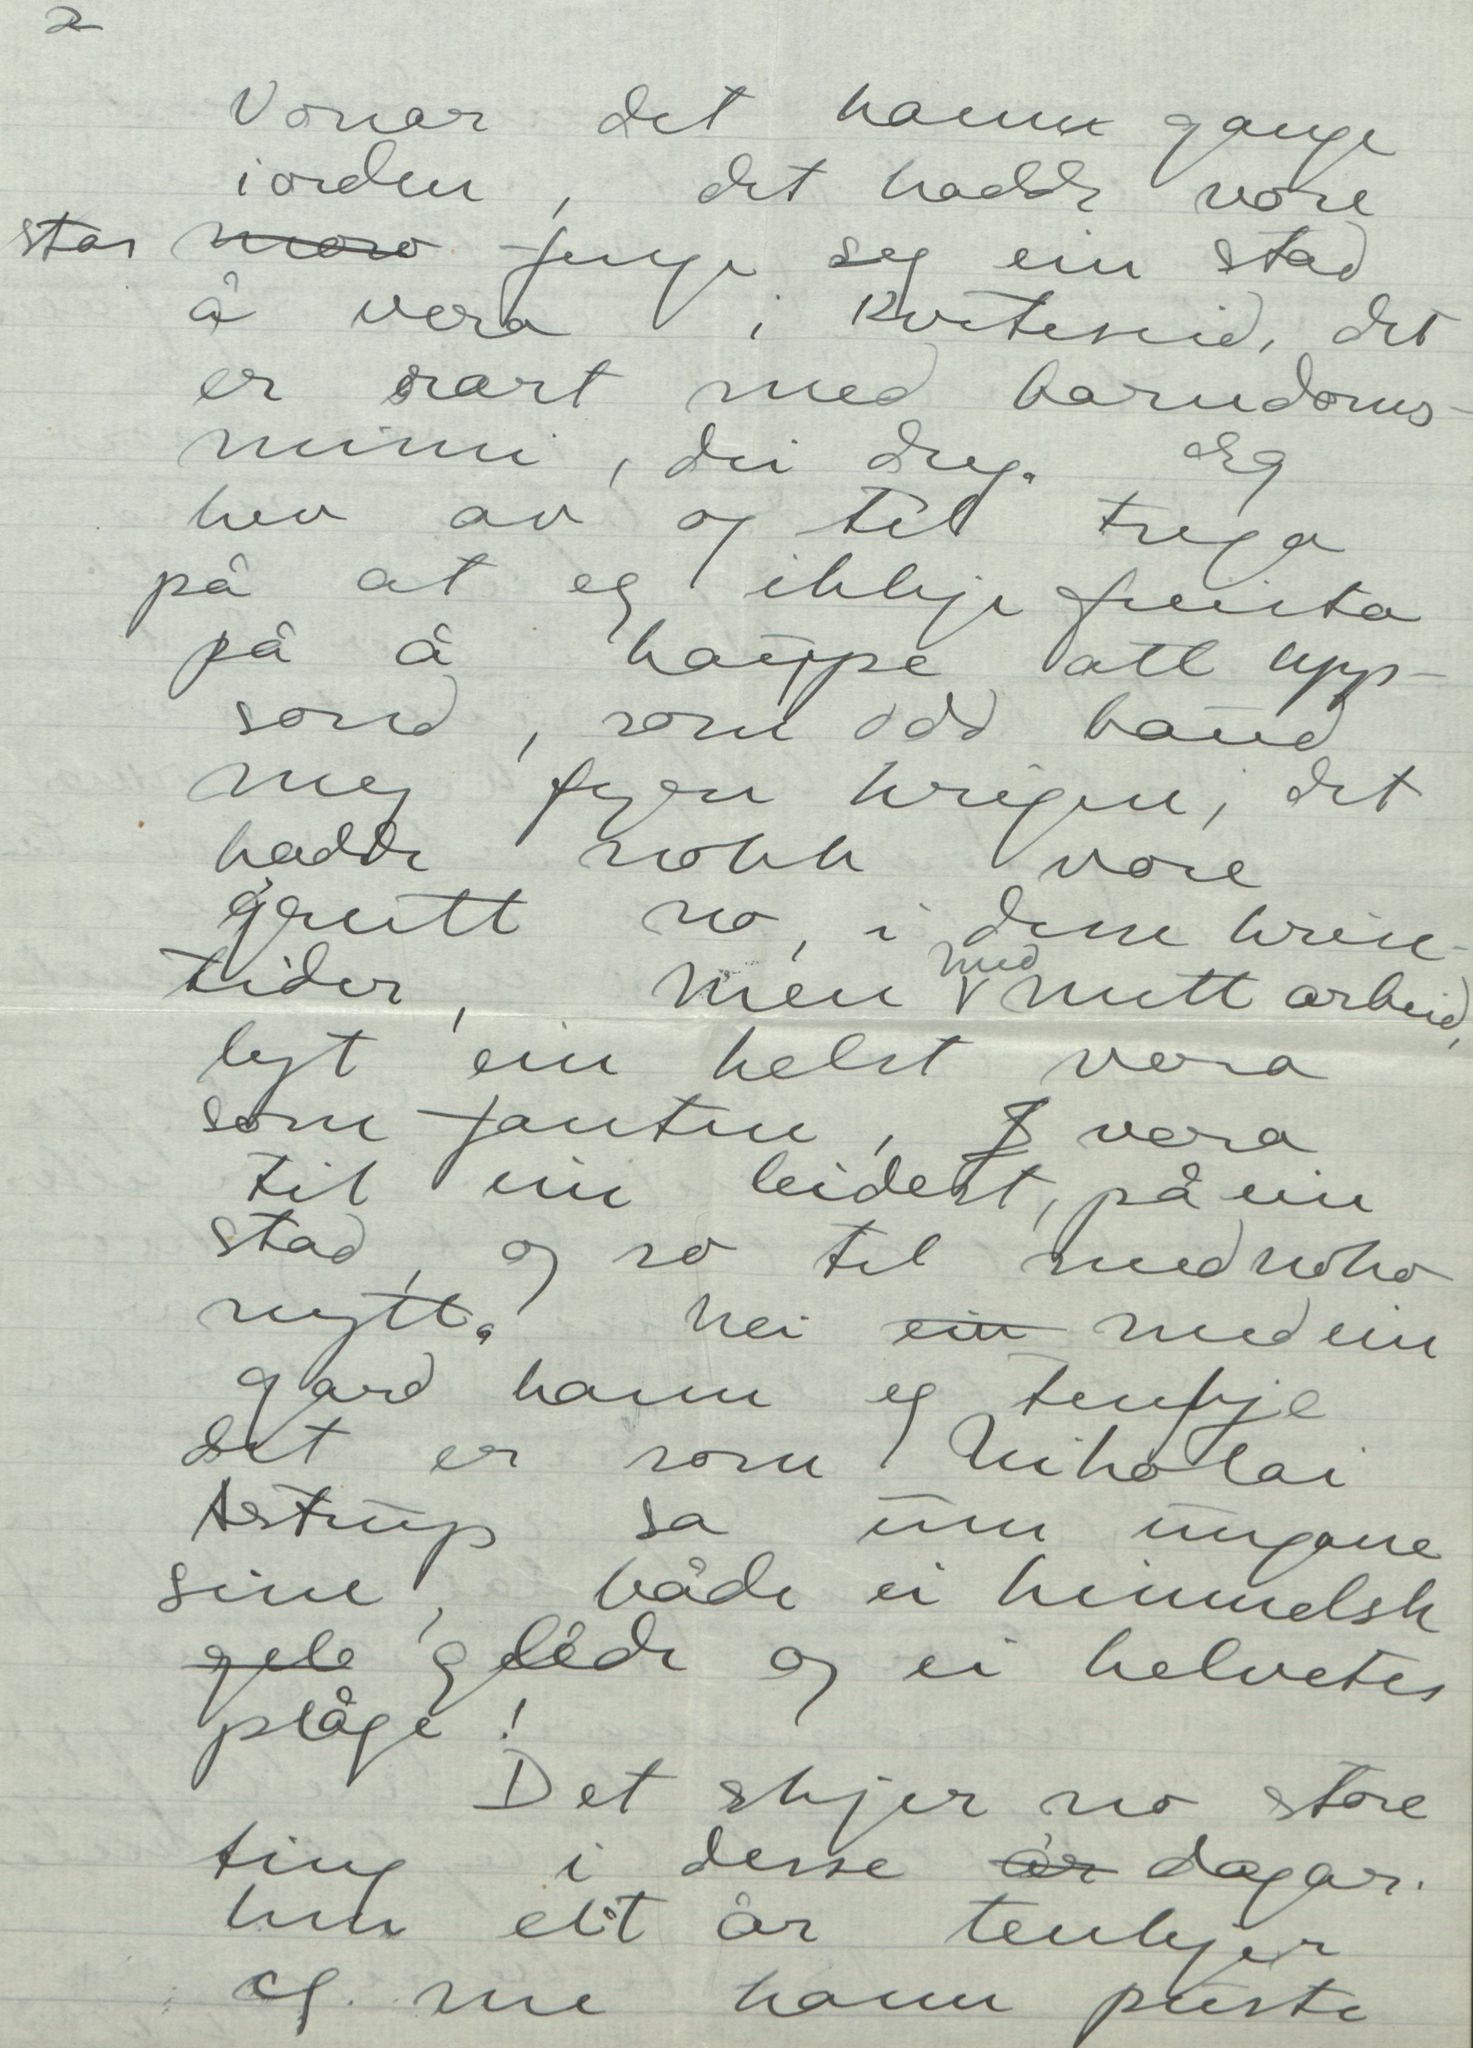 2
Vonar det kann gange
iorden, det hadde vore
stas ~~moro~~ fenge seg ein stad
å vera i Kviteseid, det
er rart med barndoms-
minni, dei dreg. Eg
hev av og til trega
på at eg ikkje freista
på å kaupe att Upp-
sond, som Odd baud
meg fyre krigen, det
hadde nokk vore
greitt no, i desse krise-
tider, men med mitt arbeid,
lyt ein helst vera
som fanten, vera
til ein leidest, på ein
stad, og so til med noko
nytt. Nei ~~ein~~ med ein
gard kann eg tenkje
det er som Nikolai
Astrup sa um ungane
sine, både ei himmelsk
~~gele~~ glede og ei helvetes
plåge!
Det skjer no store
ting i desse ~~år~~ dagar.
Um eit år tenkjer
eg me kann puste